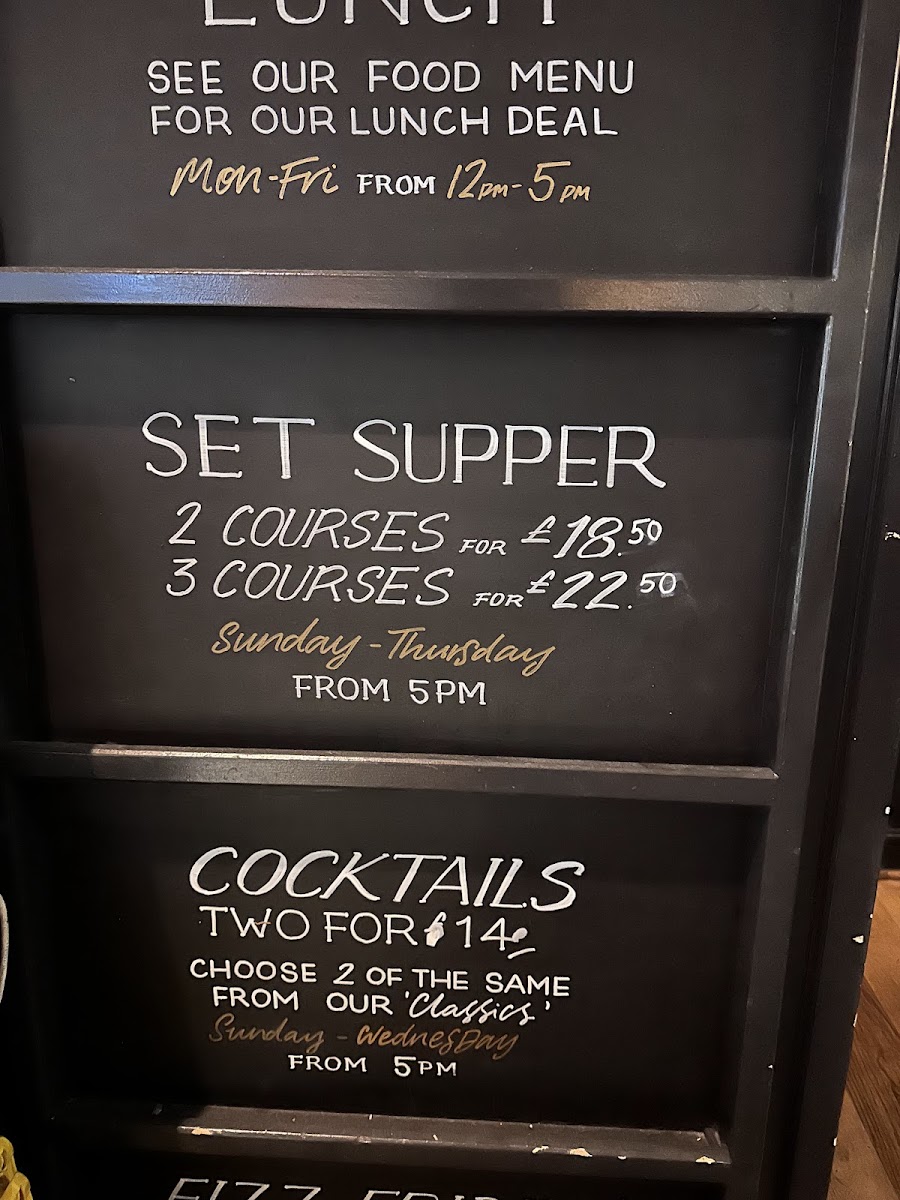 LUNCH
SEE OUR FOOD MENU
FOR OUR LUNCH DEAL
Mon-Fri FROM 12PM-5PM
SET SUPPER
2 COURSES FOR £18.50
3 COURSES FOR £22.50
Sunday - Thursday
FROM 5PM
COCKTAILS
TWO FOR £14
CHOOSE 2 OF THE SAME
FROM OUR 'Classics'
Sunday - WednesDay
FROM 5PM
FIZZ